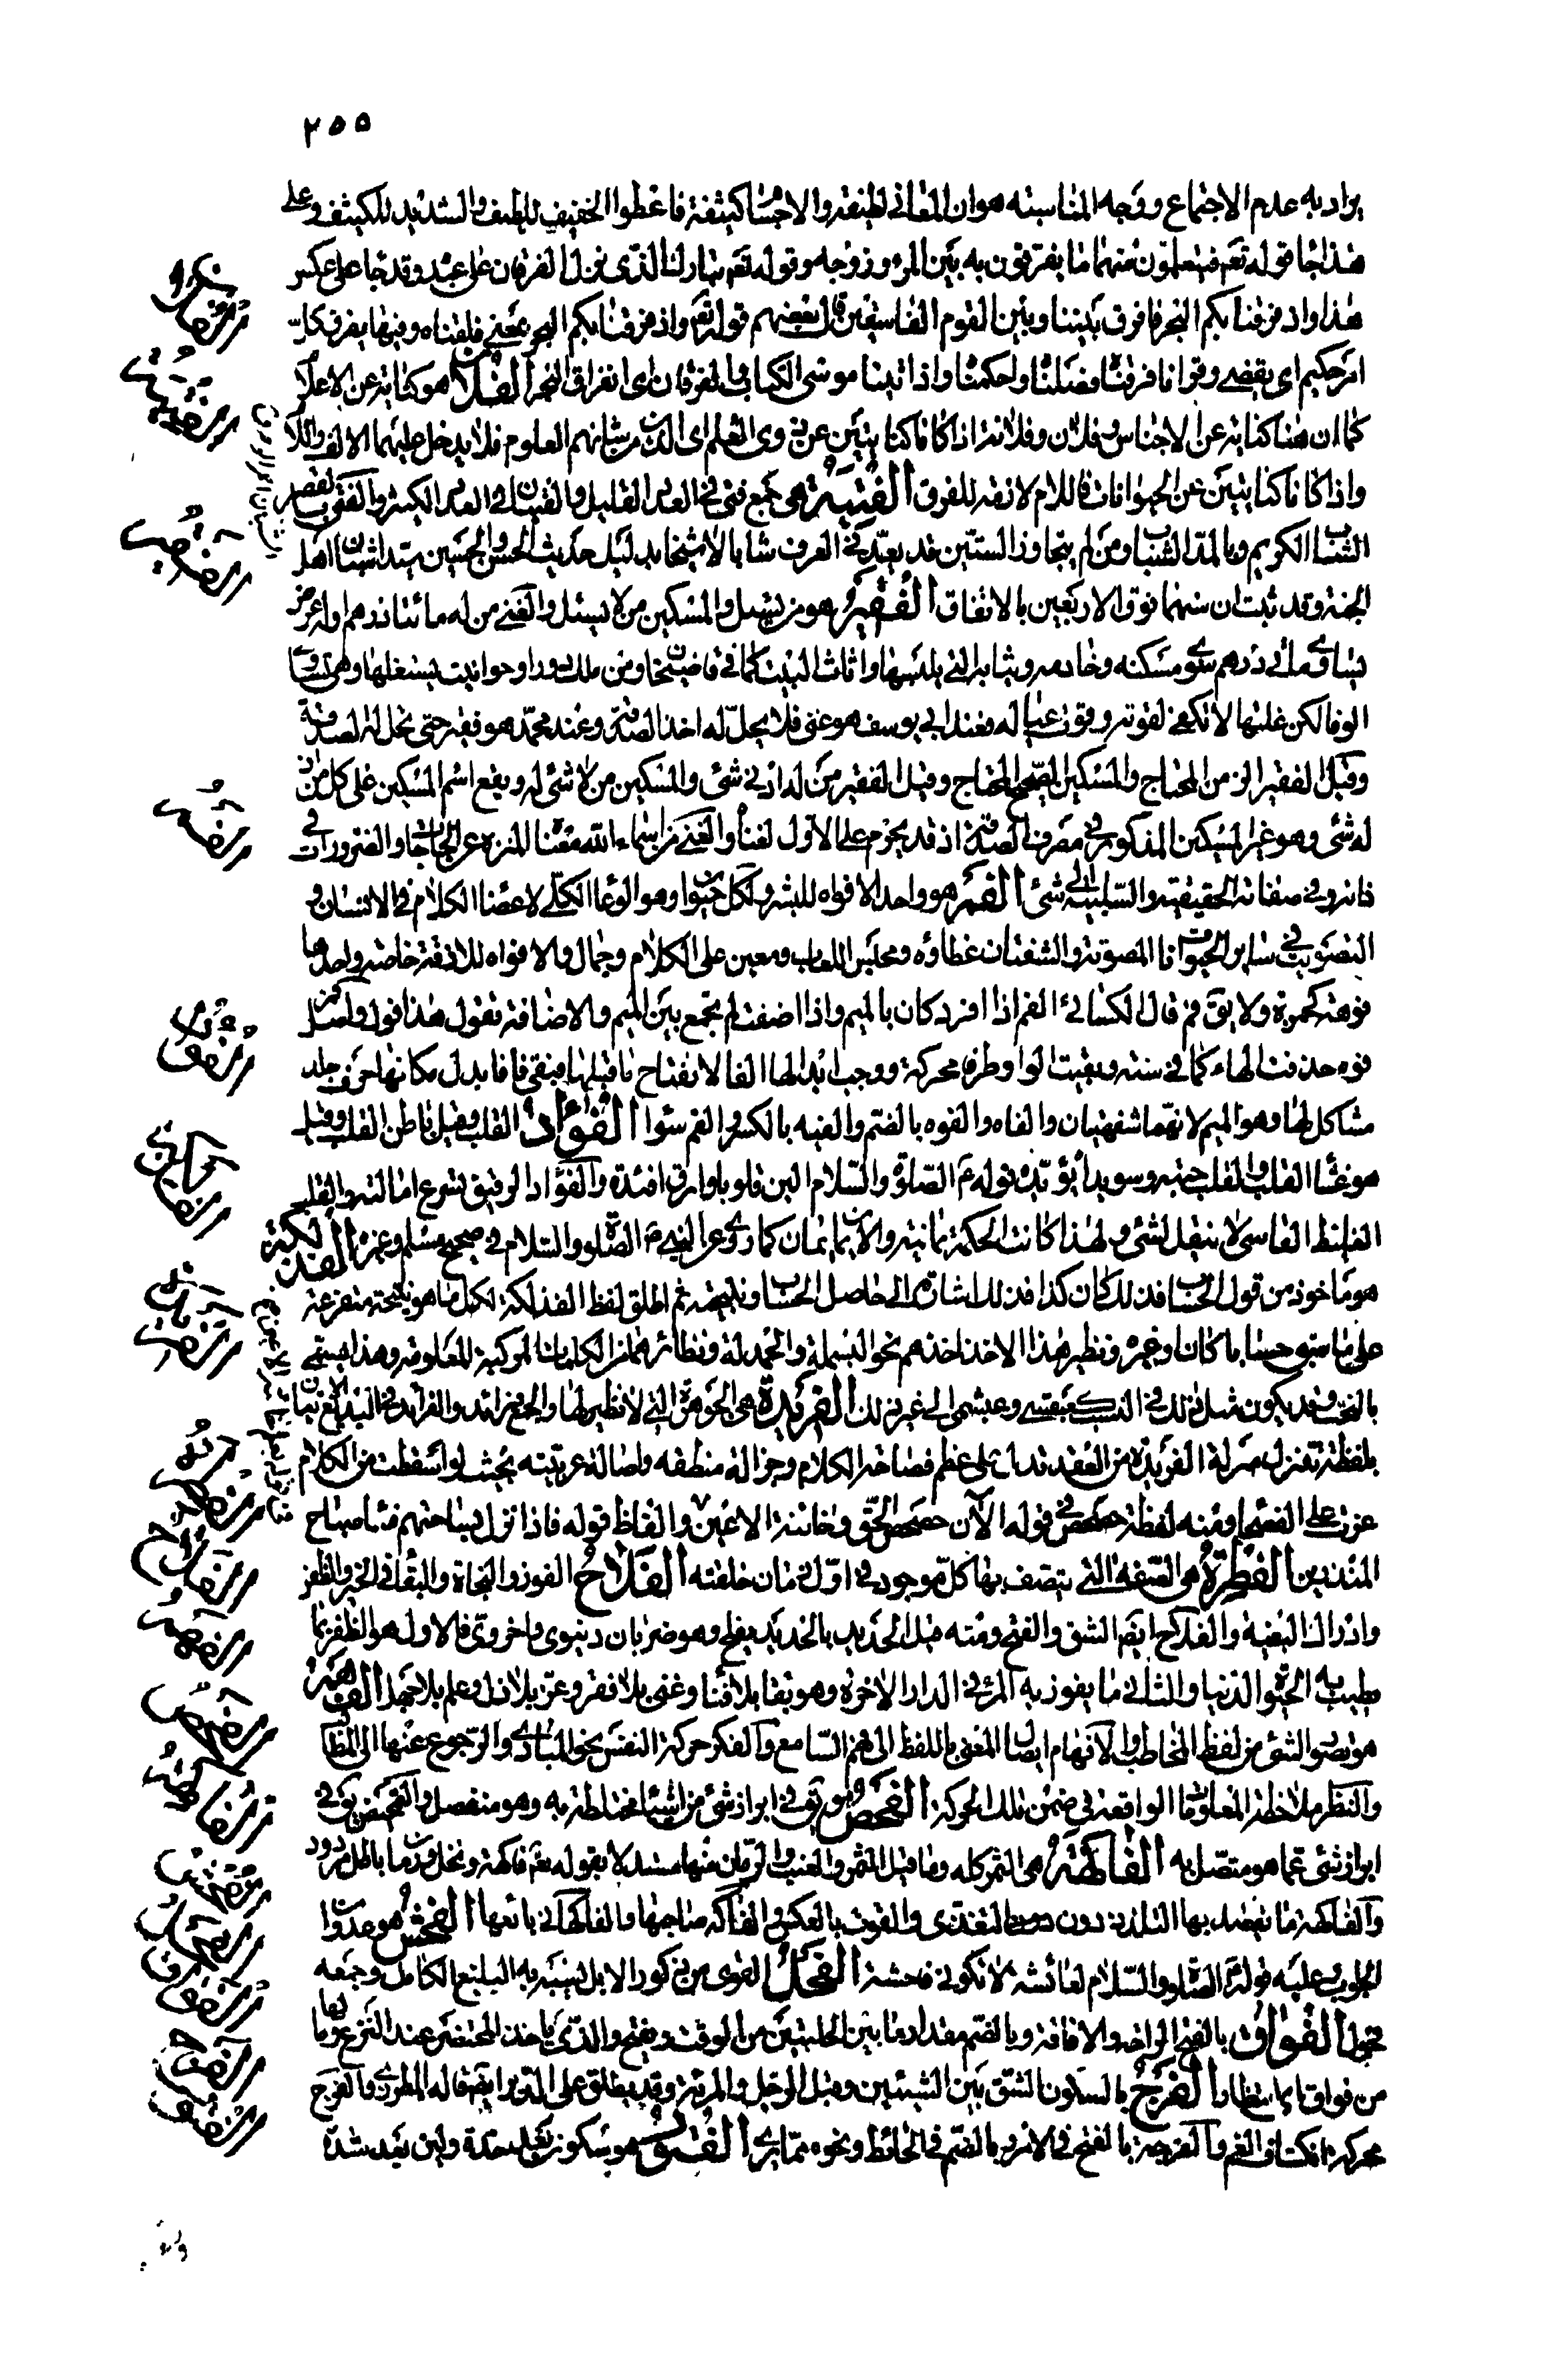 ٢٥٥
يراد به عدم الاجتماع ووجه المناسبة هو ان المعاني لطيفة والاجسام كثيفة فاعطوا الخفيف للطيف والشديد للكثيف وعلى
هذا جاء قوله تع فيتعلمون منهما ما يفرقون به بين المرء وزوجه وقوله تع تبارك الذي نزل الفرقان على عبده وقد جاء على عكس
هذا واذ فرقنا بكم البحر فافرق بيننا وبين القوم الفاسقين قال بعضهم قوله تع واذ فرقنا بكم البحر بمعنى فلقناه وفيها يفرق كل
امر حكيم اي يقضى وقرانا فرقناه فصلناه واحكمناه واذ اتينا موسى الكتاب والفرقان اي انفراق البحر الفلان هو كناية عن الاعلام
كما ان هنا كناية عن الاجناس وفلان وفلانة اذا كانا كنايتين عن ذوي العلم اي الذين من شانهم العلوم فلا يدخل عليهما الالف واللام
واذا كانا كنايتين عن الحيوانات فاللام لازمة للفرق الفتية هي جمع فتى في العدد القليل والفتيان في العدد الكثير والفتى بالقصر
الشاب الكريم وبالمد الشباب ومن لم يتجاوز الستين قد يعد في العرف شابا لا شيخا بدليل حديث الحسن والحسين سيدا شبان اهل
الجنة وقد ثبت ان سنهما فوق الاربعين بالاتفاق الفقير هو من يسئل والمسكين من لا يسئل والغني من له مائتا درهم او له عرض
يساوي مائتي درهم سوى مسكنه وخادمه وثيابه التي يلبسها واثاث البيت كما في قاضيخان ومن ملك دورا وحوانيت يستغلها وهي تساوي
الوفا لكن غلتها لا تكفي لقوته وقوت عياله فعند ابي يوسف هو غني فلا يحل له اخذ الصدقة وعند محمد هو فقير حتى تحل له الصدقة
وقيل الفقير الزمن المحتاج والمسكين الصحيح المحتاج وقيل الفقير من له ادنى شئ والمسكين من لا شئ له ويقع اسم المسكين على كل من
له شئ وهو غير المسكين المذكور في مصرف الصدقة اذ قد يحرم على الاول لغناه والغني من اسماء الله معناه المنزه عن الحاجات والضرورات في
ذاته وفي صفاته الحقيقية والسلبية الى شئ الفم هو واحد الافواه للبشر ولكل حيوان وهو الوعاء الكلي لاعضاء الكلام في الانسان و
التصويت في سائر الحيوانات المصوتة والشفتان غطاؤه ومحبس اللعاب ومعين على الكلام وجمال والافواه للازقة خاصة واحدها
فوهة كحمرة ولا يق فم قال الكسائي الفم اذا افرد كان بالميم واذا اضفته لم تجمع بين الميم والاضافة تقول هذا فوك واصل فم
فوه حذفت الهاء كما في سنة وبقيت الواو طرفا محركة ووجب ابدالها الفا لانفتاح ما قبلها فبقي فا فابدل مكانها حرف جلد
مشاكل لها وهو الميم لانهما شفهيتان والفاه والفوه بالضم والفيه بالكسر والفم سواء الفؤاد القلب وقيل باطن القلب وقيل
هو غشاء القلب والقلب حبته وسويداؤه يؤيده قوله ع الصلوة والسلام الين قلوبا وارق افئدة والفؤاد الرقيق تسرع امالته والقلب
الغليظ القاسي لا ينفعل لشئ ولهذا كانت الحكمة يمانية والايمان يمان كما روي عن النبي ع الصلوة والسلام في صحيح مسلم وغيره الفذلكة
هو ماخوذ من قول الحساب فذلك كان كذا فذلك اشارة الى حاصل الحساب ونتيجته ثم اطلق لفظ الفذلكة لكل ما هو نتيجة متفرعة
على ما سبق حسابا كان او غيره ونظير هذا الاخذ اخذهم نحو البسملة والحمدلة ونظائرهما من الكلمات المركبة المعلومة وهذا يسمى
بالنحت وقد يكون مثل ذلك في النسب كعبقسي وعبشمي الى غير ذلك الفريدة هي الجوهرة التي لا نظير لها والجمع فرائد والفرائد في البديع الاتيان
بلفظة تتنزل منزلة الفريدة من العقد تدل على عظم فصاحة الكلام وجزالة منطقه واصالة عربيته بحيث لو اسقطت من الكلام
عزت على الفصحاء ومنه لفظة حصحص في قوله الآن حصحص الحق وخائنة الاعين والفاظ قوله فاذا نزل بساحتهم فساء صباح
المنذرين الفطرة هي الصفة التي يتصف بها كل موجود في اول زمان خلقته الفلاح الفوز والنجاة والبقاء في الخير والظفر
وادراك البغية والفلاح ايض الشق والفتح ومنه مثل الحديد بالحديد يفلح وهو ضربان دنيوي واخروي فالاول هو الظفر بما
يطيب به الحيوة الدنيا والثاني ما يفوز به المرء في الدار الاخرة وهو بقاء بلا فناء وغنى بلا فقر وعز بلا ذل وعلم بلا جهل الفهم
هو تصور الشئ من لفظ المخاطب والافهام ايصال المعنى باللفظ الى فهم السامع والفكر حركة النفس نحو المبادي والرجوع عنها الى المطالب
والنظر ملاحظة المعلومات الواقعة في ضمن تلك الحركة الفحص هو يق في ابراز شئ من اشياء مختلطة به وهو منفصل والتمحيص يق في
ابراز شئ عما هو متصل به الفاكهة هي الثمر كله وما قيل التمر والعنب والرمان منها مستدلا بقوله تع فاكهة ونخل ورمان باطل مردود
والفاكهة ما يقصد بها التلذذ دون التغذي والقوت بالعكس والفاكه صاحبها والفاكهاني بائعها الفحش هو عدوان
الجواب عليه قوله الصلوة والسلام لعائشة لا تكوني فاحشة الفحل القوي من ذكور الابل يشبه به البليغ الكامل وجمعه
فحول الفواق بالفتح الراحة والافاقة وبالضم مقدار ما بين الحلبتين من الوقت ويفتح والذي ياخذ المحتضر عند النزع وما لها
من فواق اي انتظار الفرج بالسكون الشق بين الشيئين وقبل الرجل والمرءة وقد يطلق على الدبر ايض قاله المطرزي والفرج
محركة انكشاف الغم والفرجة بالفتح في الامر وبالضم في الحائط ونحوه مما يرى الفتور هو سكون بعد حدة ولين بعد شدة